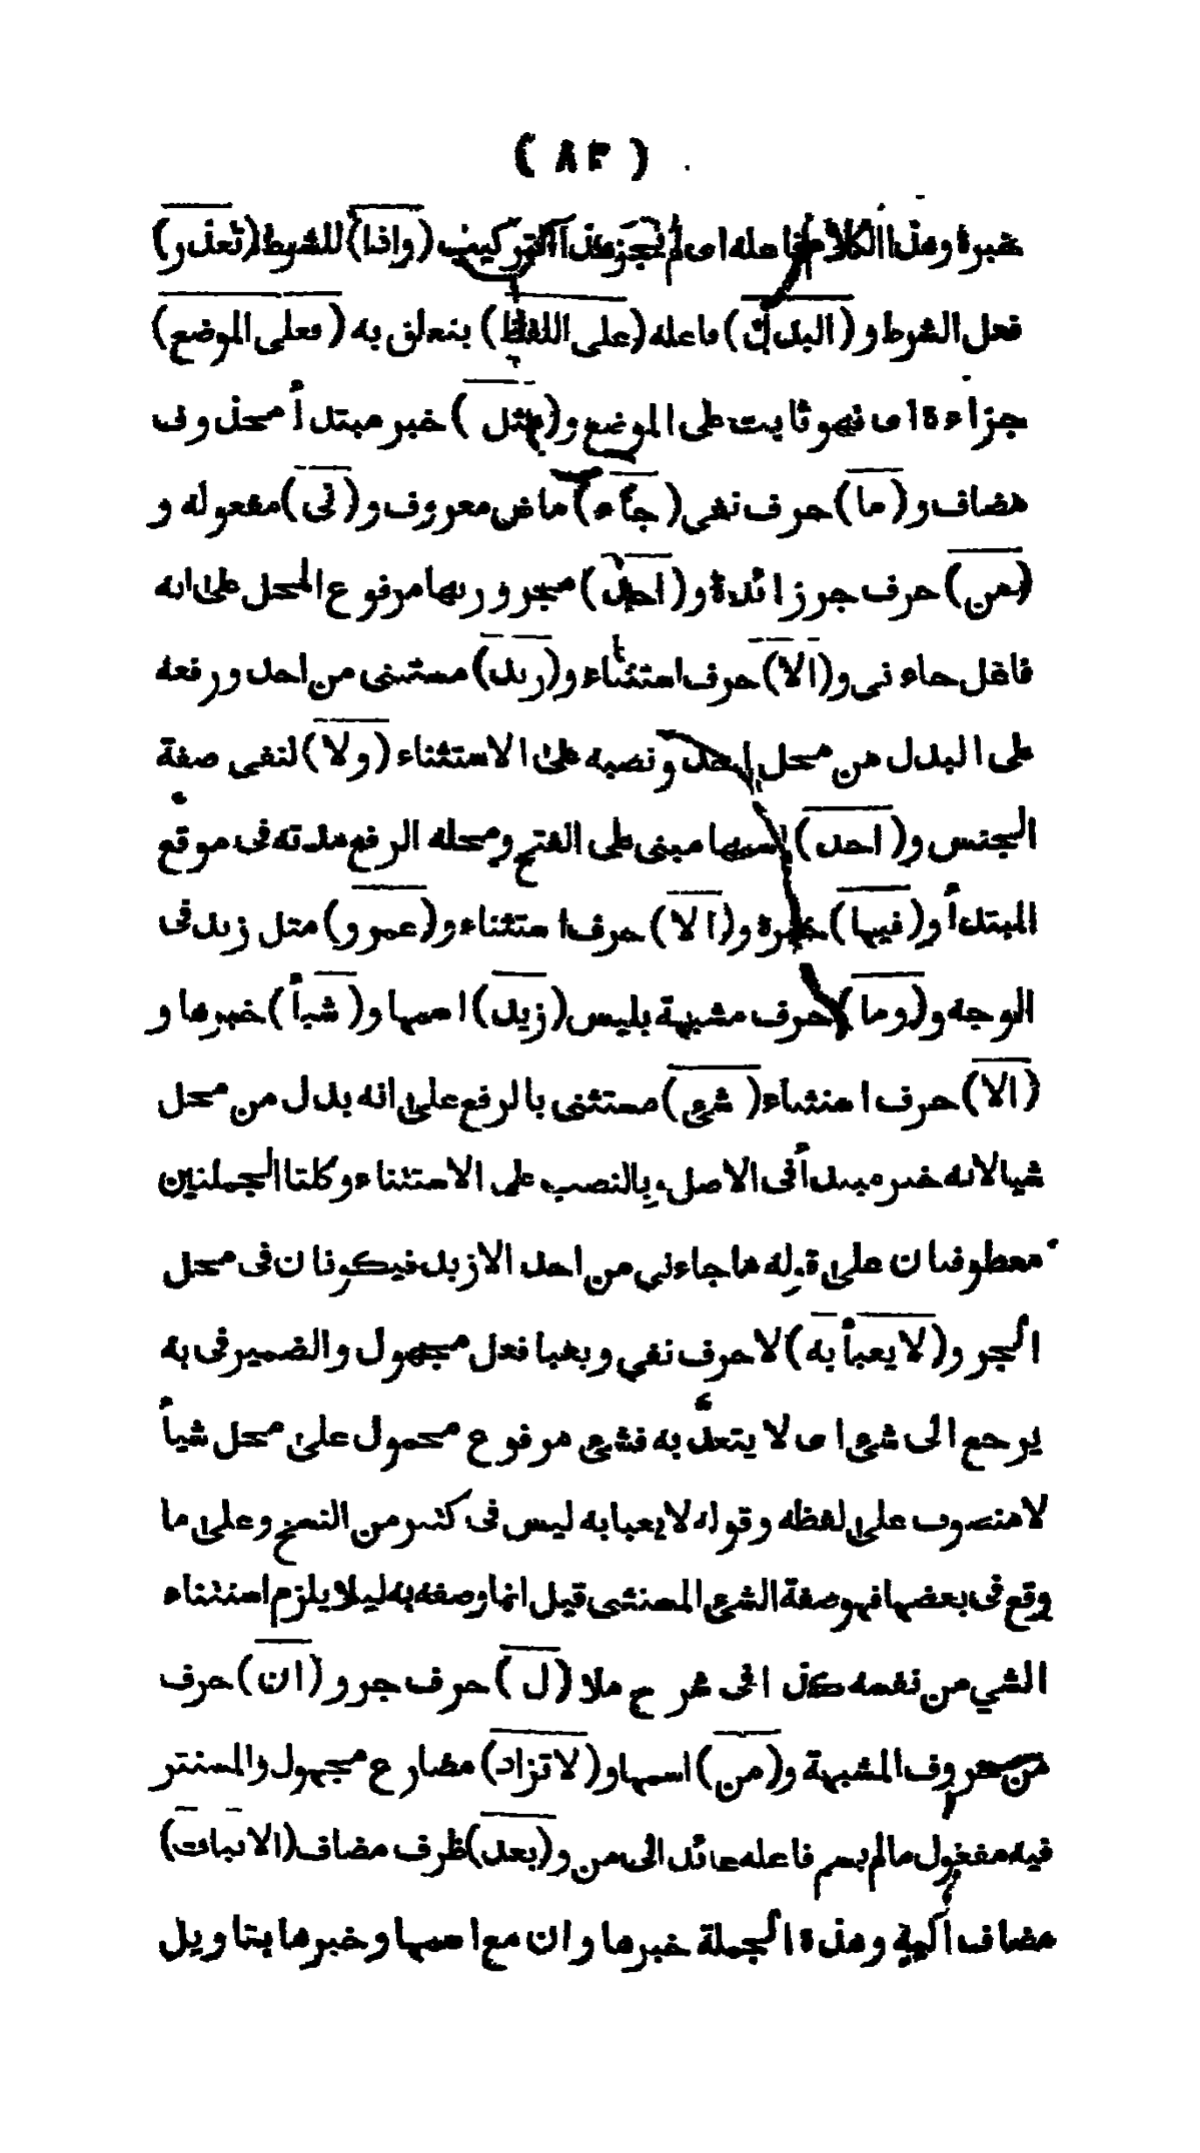 ( ٨٣ )
خبره وهذا الكلام فاعله اى لم يجز هذا التركيب (واذا) للشرط (تعذر)
فعل الشرط و (البدل) فاعله (على اللفظ) يتعلق به (فعلى الموضع)
جزاءه اى فهو ثابت على الموضع و (مثل) خبر مبتدأ محذوف
مضاف و (ما) حرف نفى (جاء) ماض معروف و (نى) مفعوله و
(من) حرف جر زائدة و (احد) مجرور بها مرفوع المحل على انه
فاعل جاء نى و (الا) حرف استثناء و (زيد) مستثنى من احد ورفعه
على البدل من محل احد ونصبه على الاستثناء (ولا) لنفى صفة
الجنس و (احد) اسمها مبنى على الفتح ومحله الرفع مدته فى موقع
المبتدأ و (فيها) خبره و (الا) حرف استثناء و (عمرو) مثل زيد فى
الوجه و (وما) حرف مشبهة بليس (زيد) اسمها و (شيأ) خبرها و
(الا) حرف استثناء (شئ) مستثنى بالرفع على انه بدل من محل
شيا لانه خبر مبتدأ فى الاصل وبالنصب على الاستثناء وكلتا الجملتين
معطوفتان على قوله ما جاءنى من احد الا زيد فيكونان فى محل
الجر و (لا يعبأ به) لا حرف نفي ويعبا فعل مجهول والضمير فى به
يرجع الى شئ اى لا يتعدّ به فشئ مرفوع محمول على محل شيأ
لا منصوب على لفظه وقوله لا يعبا به ليس فى كثير من النسخ وعلى ما
وقع فى بعضها فهو صفة الشئ المستثنى قيل انما وصفه به ليلا يلزم استثناء
الشي من نفسه كذا فى شرح ملا (ل) حرف جر و (ان) حرف
من حروف المشبهة و (من) اسمها و (لا تزاد) مضارع مجهول والمستتر
فيه مفعول مالم يسم فاعله عائد الى من و (بعد) ظرف مضاف (الاثبات)
مضاف اليه وهذه الجملة خبرها وان مع اسمها وخبرها بتاويل